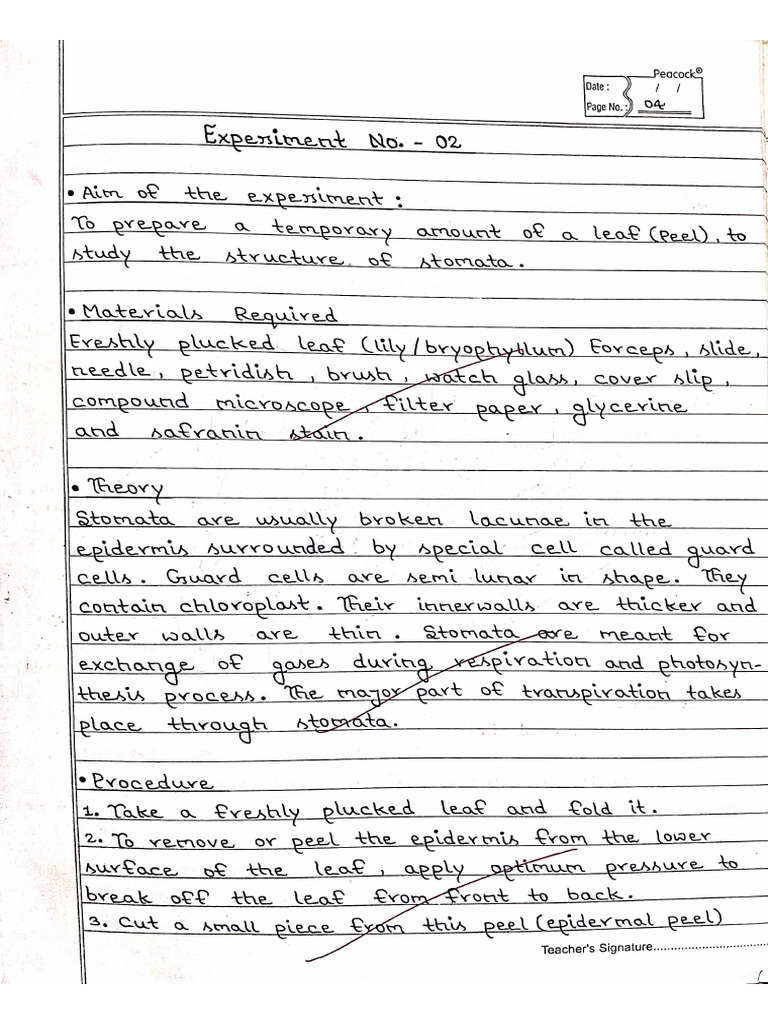 Peacock®
Date : / /
Page No. : 04
Experiment No. - 02
• Aim of the experiment :
To prepare a temporary amount of a leaf (Peel), to
study the structure of stomata.
• Materials Required
Freshly plucked leaf (lily/bryophytlum) Forceps, slide,
needle, petridish, brush, watch glass, cover slip,
compound microscope, filter paper, glycerine
and safranin stain.
• Theory
Stomata are usually broken lacunae in the
epidermis surrounded by special cell called guard
cells. Guard cells are semi lunar in shape. They
contain chloroplast. Their innerwalls are thicker and
outer walls are thin. Stomata are meant for
exchange of gases during respiration and photosyn-
thesis process. The major part of transpiration takes
place through stomata.
• Procedure
1. Take a freshly plucked leaf and fold it.
2. To remove or peel the epidermis from the lower
surface of the leaf, apply optimum pressure to
break off the leaf from front to back.
3. Cut a small piece from this peel (epidermal peel)
Teacher's Signature..............................